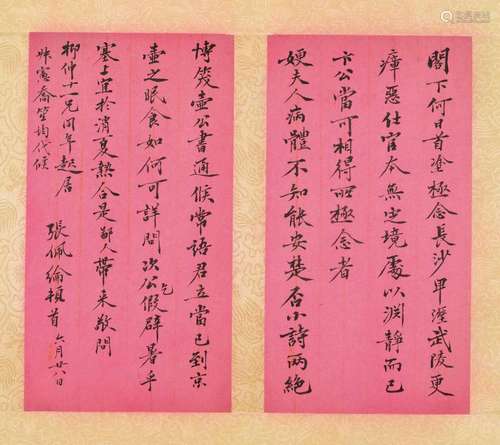 閣下何日首塗極念長沙卑溼武陵更
瘴惡仕宦本無定境處以淵靜而已
卞公當可相得所極念者
嫂夫人病體不知能安楚否小詩兩絕
博笈壺公書通候常語君立當已到京
壺之眠食如何可詳問次公乞假辟暑乎
塞上宜於消夏熱合是鄙人帶來敬問
柳仲十一兄同年起居
張佩綸頓首 六月廿八日